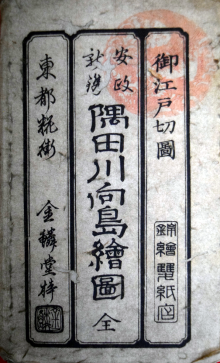 御江戸切圖
錦繪雙紙店
安政新鐫
隅田川向島繪圖 全
東都糀街 金鱗堂梓